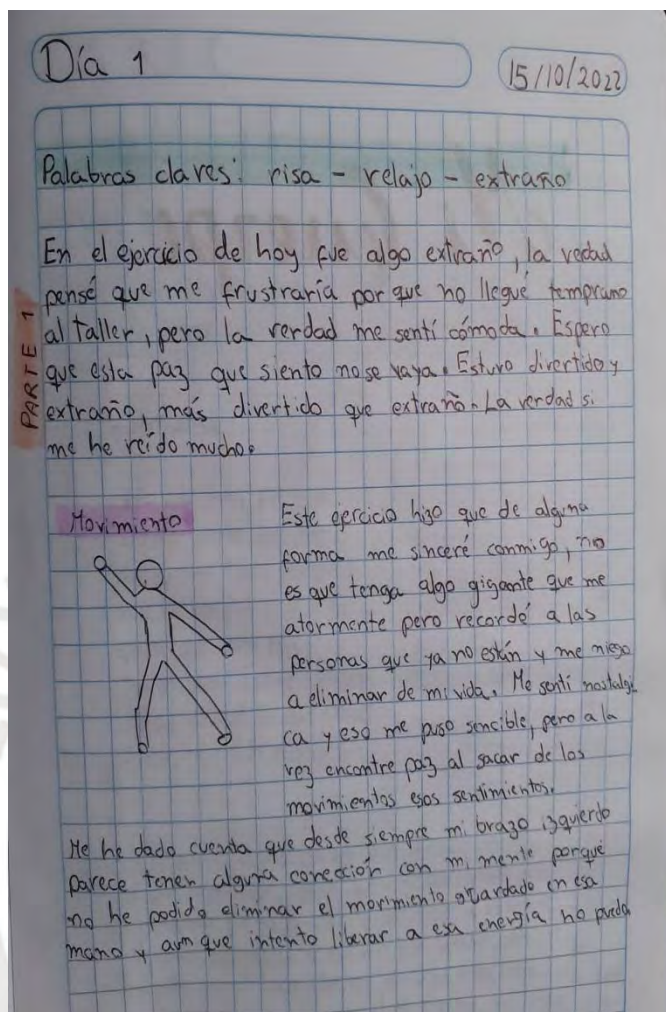 Día 1
15/10/2022
Palabras claves: risa - relajo - extraño
PARTE 1
En el ejercicio de hoy fue algo extraño, la verdad
pensé que me frustraría por que no llegué temprano
al taller, pero la verdad me sentí cómoda. Espero
que esta paz que siento no se vaya. Estuvo divertido y
extraño, más divertido que extraño. La verdad si
me he reído mucho.
Movimiento
Este ejercicio hizo que de alguna
forma me sinceré conmigo, no
es que tenga algo gigante que me
atormente pero recordé a las
personas que ya no están y me niego
a eliminar de mi vida. Me sentí nostalgi
ca y eso me puso sencible, pero a la
vez encontre paz al sacar de los
movimientos esos sentimientos.
Me he dado cuenta que desde siempre mi brazo izquierdo
parece tener alguna conección con mi mente porque
no he podido eliminar el movimiento guardado en esa
mano y aun que intento liberar a esa energía no puedo